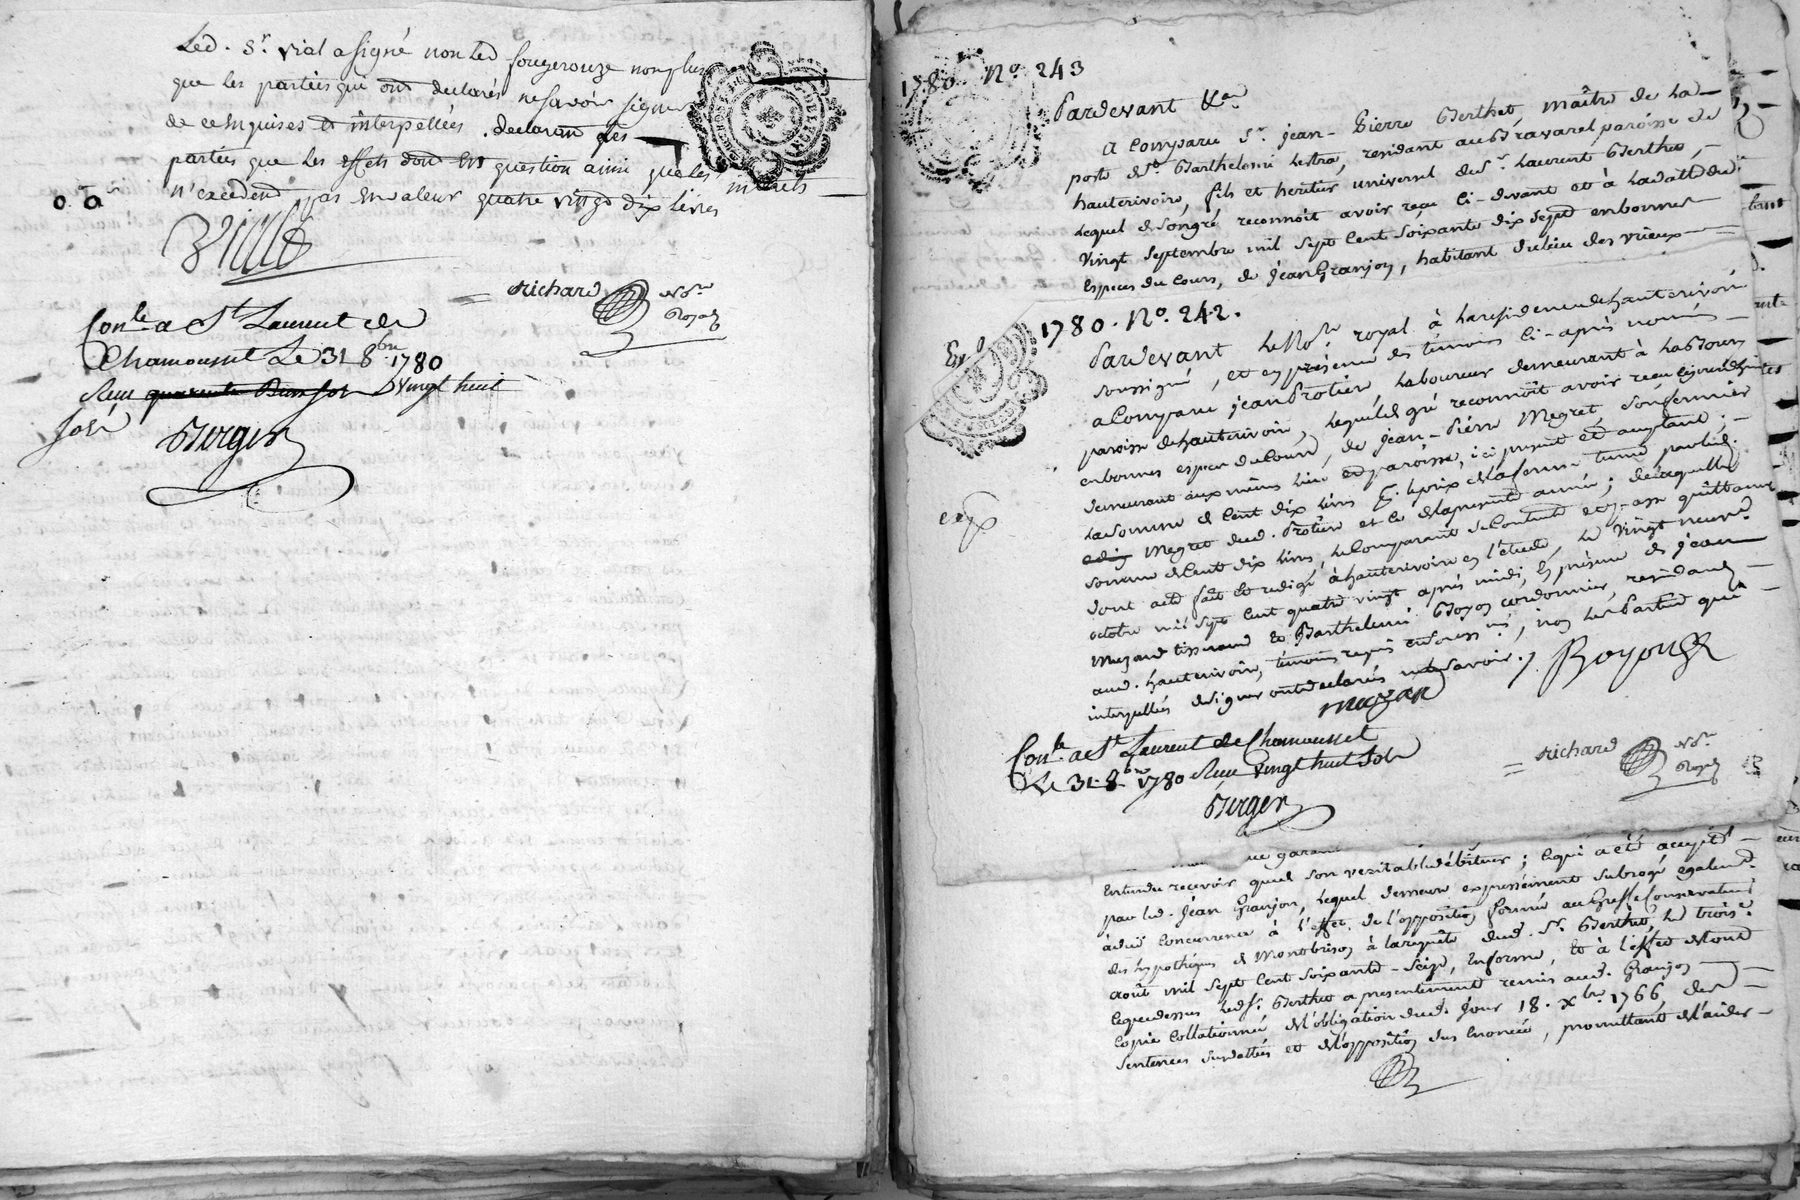 Led. Sr. Vial a signé non led fougerouze non plus
que les parties qui ont declarés ne savoir signer
de ce enquises et interpellées. declarant les
parties que les effets dont est question ainsi que les
n'excedent pas en valeur quatre vingt dix livres
Vial
Richard Nore Royal
Conlé a St Laurent de
Chamousset Le 31 8bre 1780
Reçu vingt huit
sols
Berger
1780 No. 243
Pardevant &a
a Comparu Sr. jean-Pierre Berthet, maître de la
poste de St. Barthelemi Lestra, residant au Bravard paroisse de
hauterivoire, fils et heritier universel de Sr. Laurent Berthet,
lequel de son gré reconnoit avoir reçu ci-devant et à la datte du
Vingt Septembre mil Sept Cent Soixante dix Sept en bonnes
Especes du Cours, de jean Granjon, habitant du lieu des vieux
1780. No. 242.
Pardevant Le Nore royal à la residence de hauterivoire
soussigné, et en présence des temoins ci-après nommés
a Comparu jean Protière, laboureur demeurant à
paroisse de hauterivoire, lequel de gré reconnoît avoir reçu
en bonnes especes de Cours, de jean-Pierre Megret, son fermier
demeurant aux mêmes lieu et paroisse, ici présent et acceptant;
La Somme de Cent dix livres pr. le prix de la ferme tenue par led.
Megret dud. Protière et ce de la présente année; de laquelle
somme de Cent dix livres, le Comparant se Contente et en passe quittance
dont acte fait et redigé à hauterivoire en l'étude, le Vingt neuf
octobre mil Sept Cent quatre vingt après midi, En présence de jean
Mazard tisserand et Barthelemi Boyon cordonnier, residants
aud. hauterivoire, temoins requis et soussignés, non les Parties qui
interpellées de signer ont declarés ne le savoir./.
Boyon
mazard
Conlé a St Laurent de Chamousset
Le 31 8bre 1780 Reçu vingt huit Sols
Richard Nore Royal
Berger
Entendu recevoir que de son veritable débiteur; ce qui a été accepté
par led. jean Granjon, lequel demeure expressément subrogé
à due Concurrence à l'effet de l'opposition formée au Greffe Conservateur
des hypothèques de Montbrison à la requête dud. Sr. Berthet, le trois
août mil Sept Cent Soixante-Seize, En forme, Et à l'effet de tout
ce que dessus Led. Sr. Berthet a presentement remis aud. Granjon
Copie Collationnée de l'obligation dud. jour 18. Xbre 1766, des
Sentences susdattées et de l'opposition sus Enoncée, promettant de l'aider